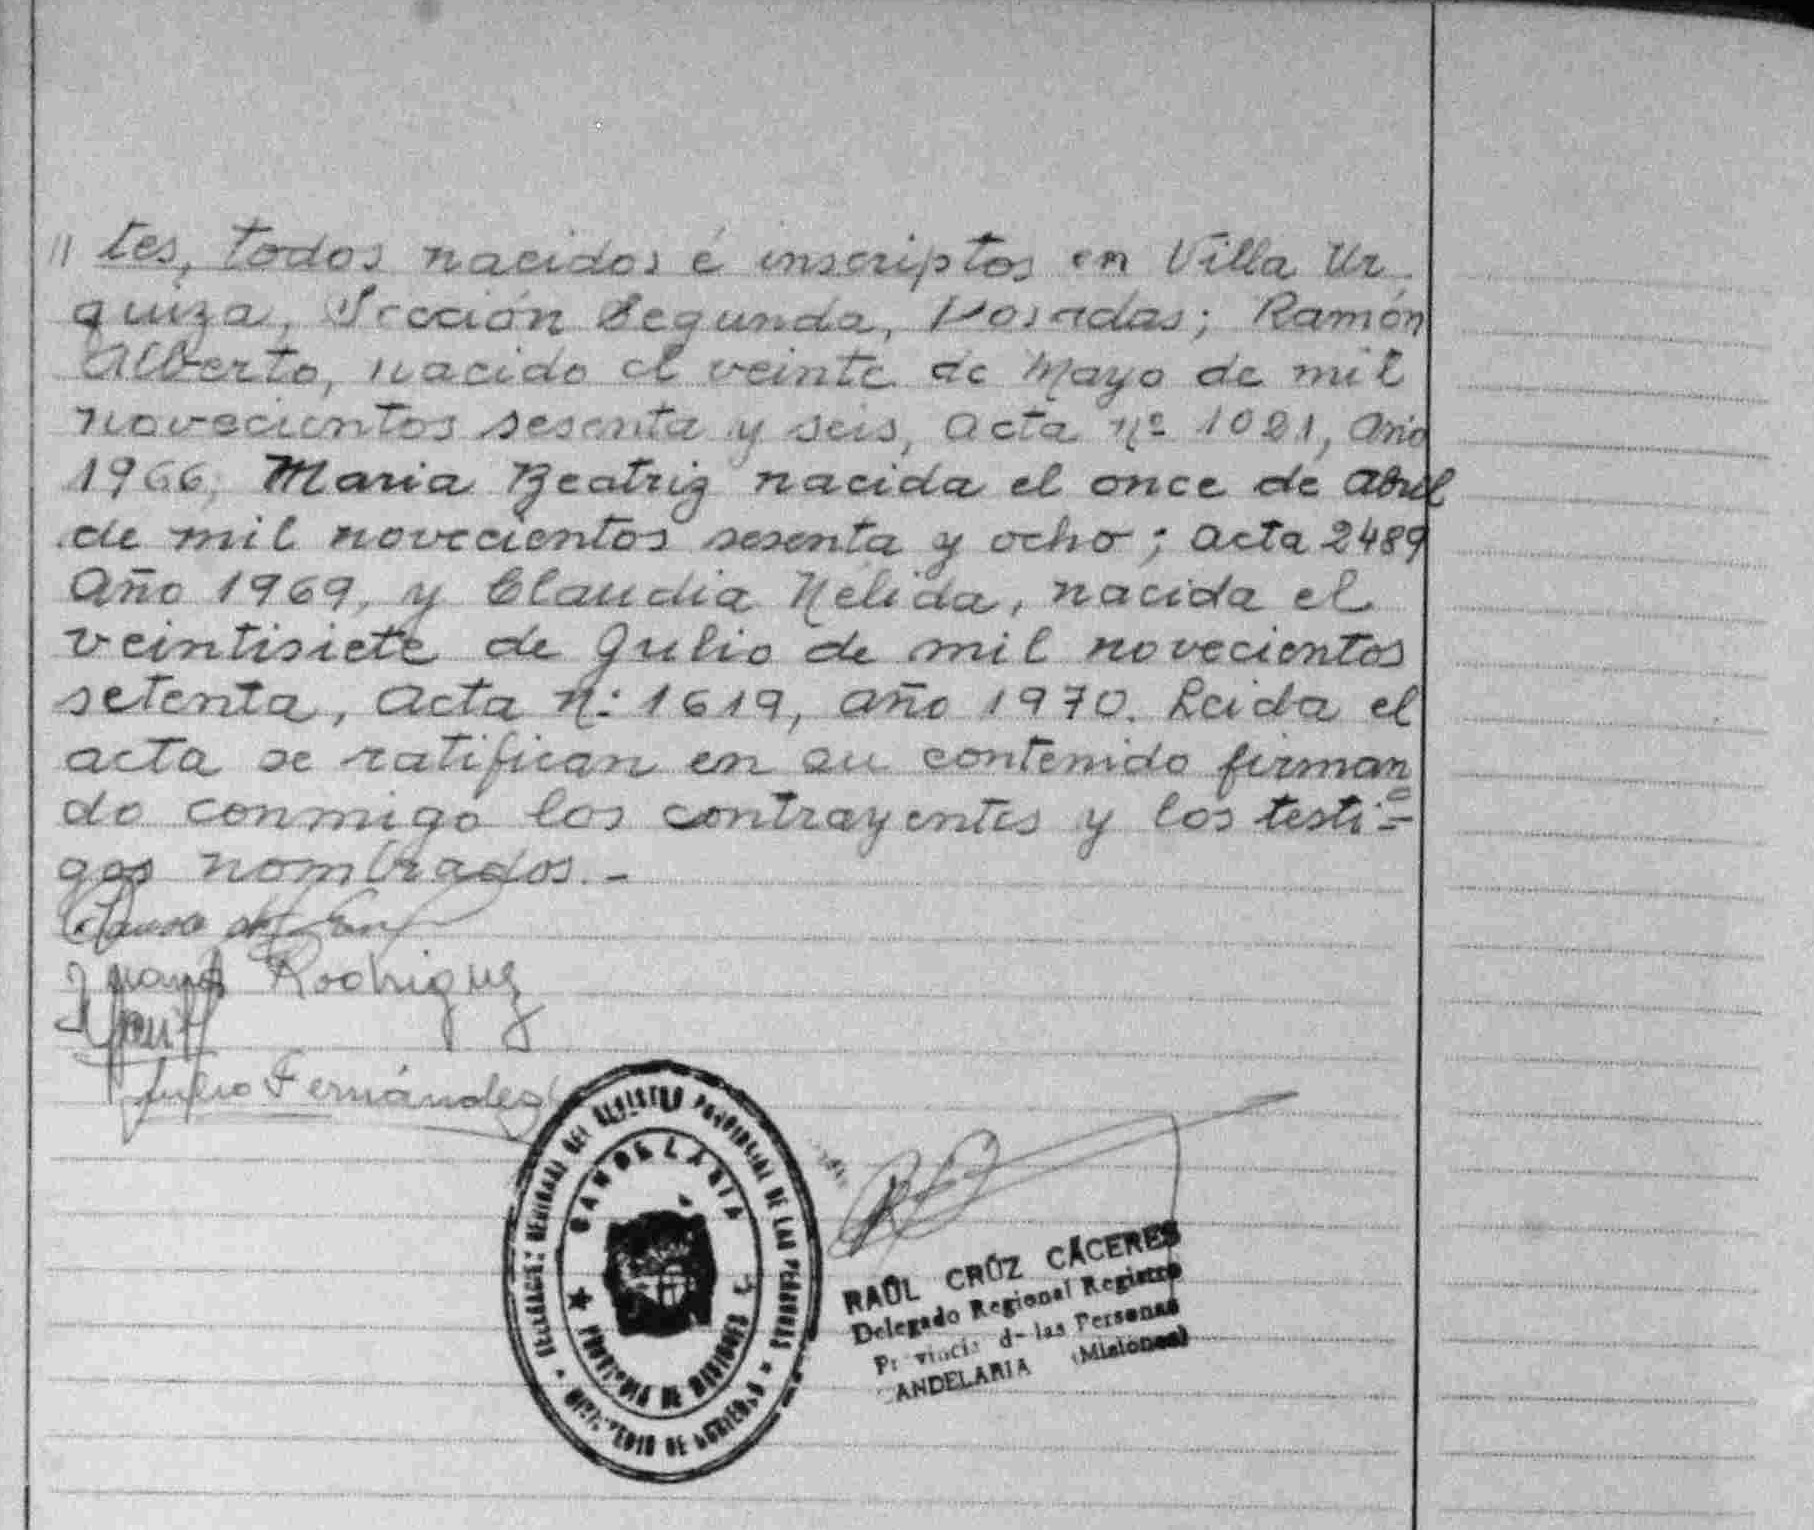 " tes, todos nacidos é inscriptos en Villa Ur
quiza, Sección Segunda, Posadas; Ramón
Alberto, nacido el veinte de Mayo de mil
novecientos sesenta y seis, Acta nº 1021, año
1966, Maria Beatriz nacida el once de Abril
de mil novecientos sesenta y ocho; acta 2489
Año 1969, y Claudia Nélida, nacida el
veintisiete de Julio de mil novecientos
setenta, Acta N: 1619, año 1970. Leida el
acta se ratifican en su contenido firman
do conmigo los contrayentes y los testi=
gos nombrados.-
Rodriguez
Julio Fernández
DEL REGISTRO PROVINCIAL DE LAS PERSONAS
CANDELARIA
PROVINCIA DE MISIONES
MINISTERIO DE GOBIERNO
RAÚL CRUZ CÁCERES
Delegado Regional Registro
Provincia d- las Personas
ANDELARIA (Misiones)